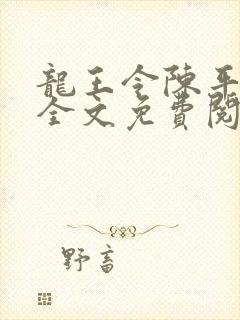 龍王令陳平
全文免費閱
野畜